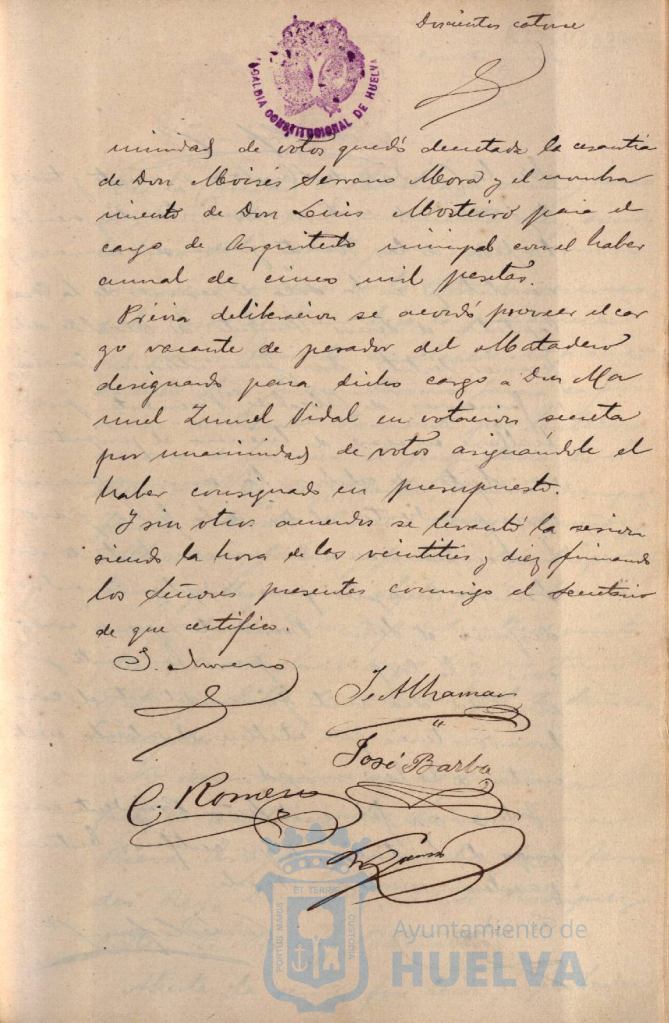 Doscientos catorce
ALCALDIA CONSTITUCIONAL DE HUELVA
nimidad de votos quedó decretada la cesantia
de Don Moisés Serrano Mora y el nombra
miento de Don Luis Mosteiro para el
cargo de Arquitecto municipal con el haber
anual de cinco mil pesetas.
Prévia deliberacion se acordó proveer el car
go vacante de pesador del Matadero
designando para dicho cargo a Don Ma
nuel Zunel Vidal en votacion secreta
por unanimidad de votos asignándole el
haber consignado en presupuesto.
Y sin otros acuerdos se levantó la sesion
siendo la hora de las veintitres y diez firmando
los Señores presentes conmigo el Secretario
de que certifico.
J. Moreno
J. Alhamar
José Barba
C. Romero
PORTUS MARIS ET TERRAE CUSTODIA
Ayuntamiento de
HUELVA